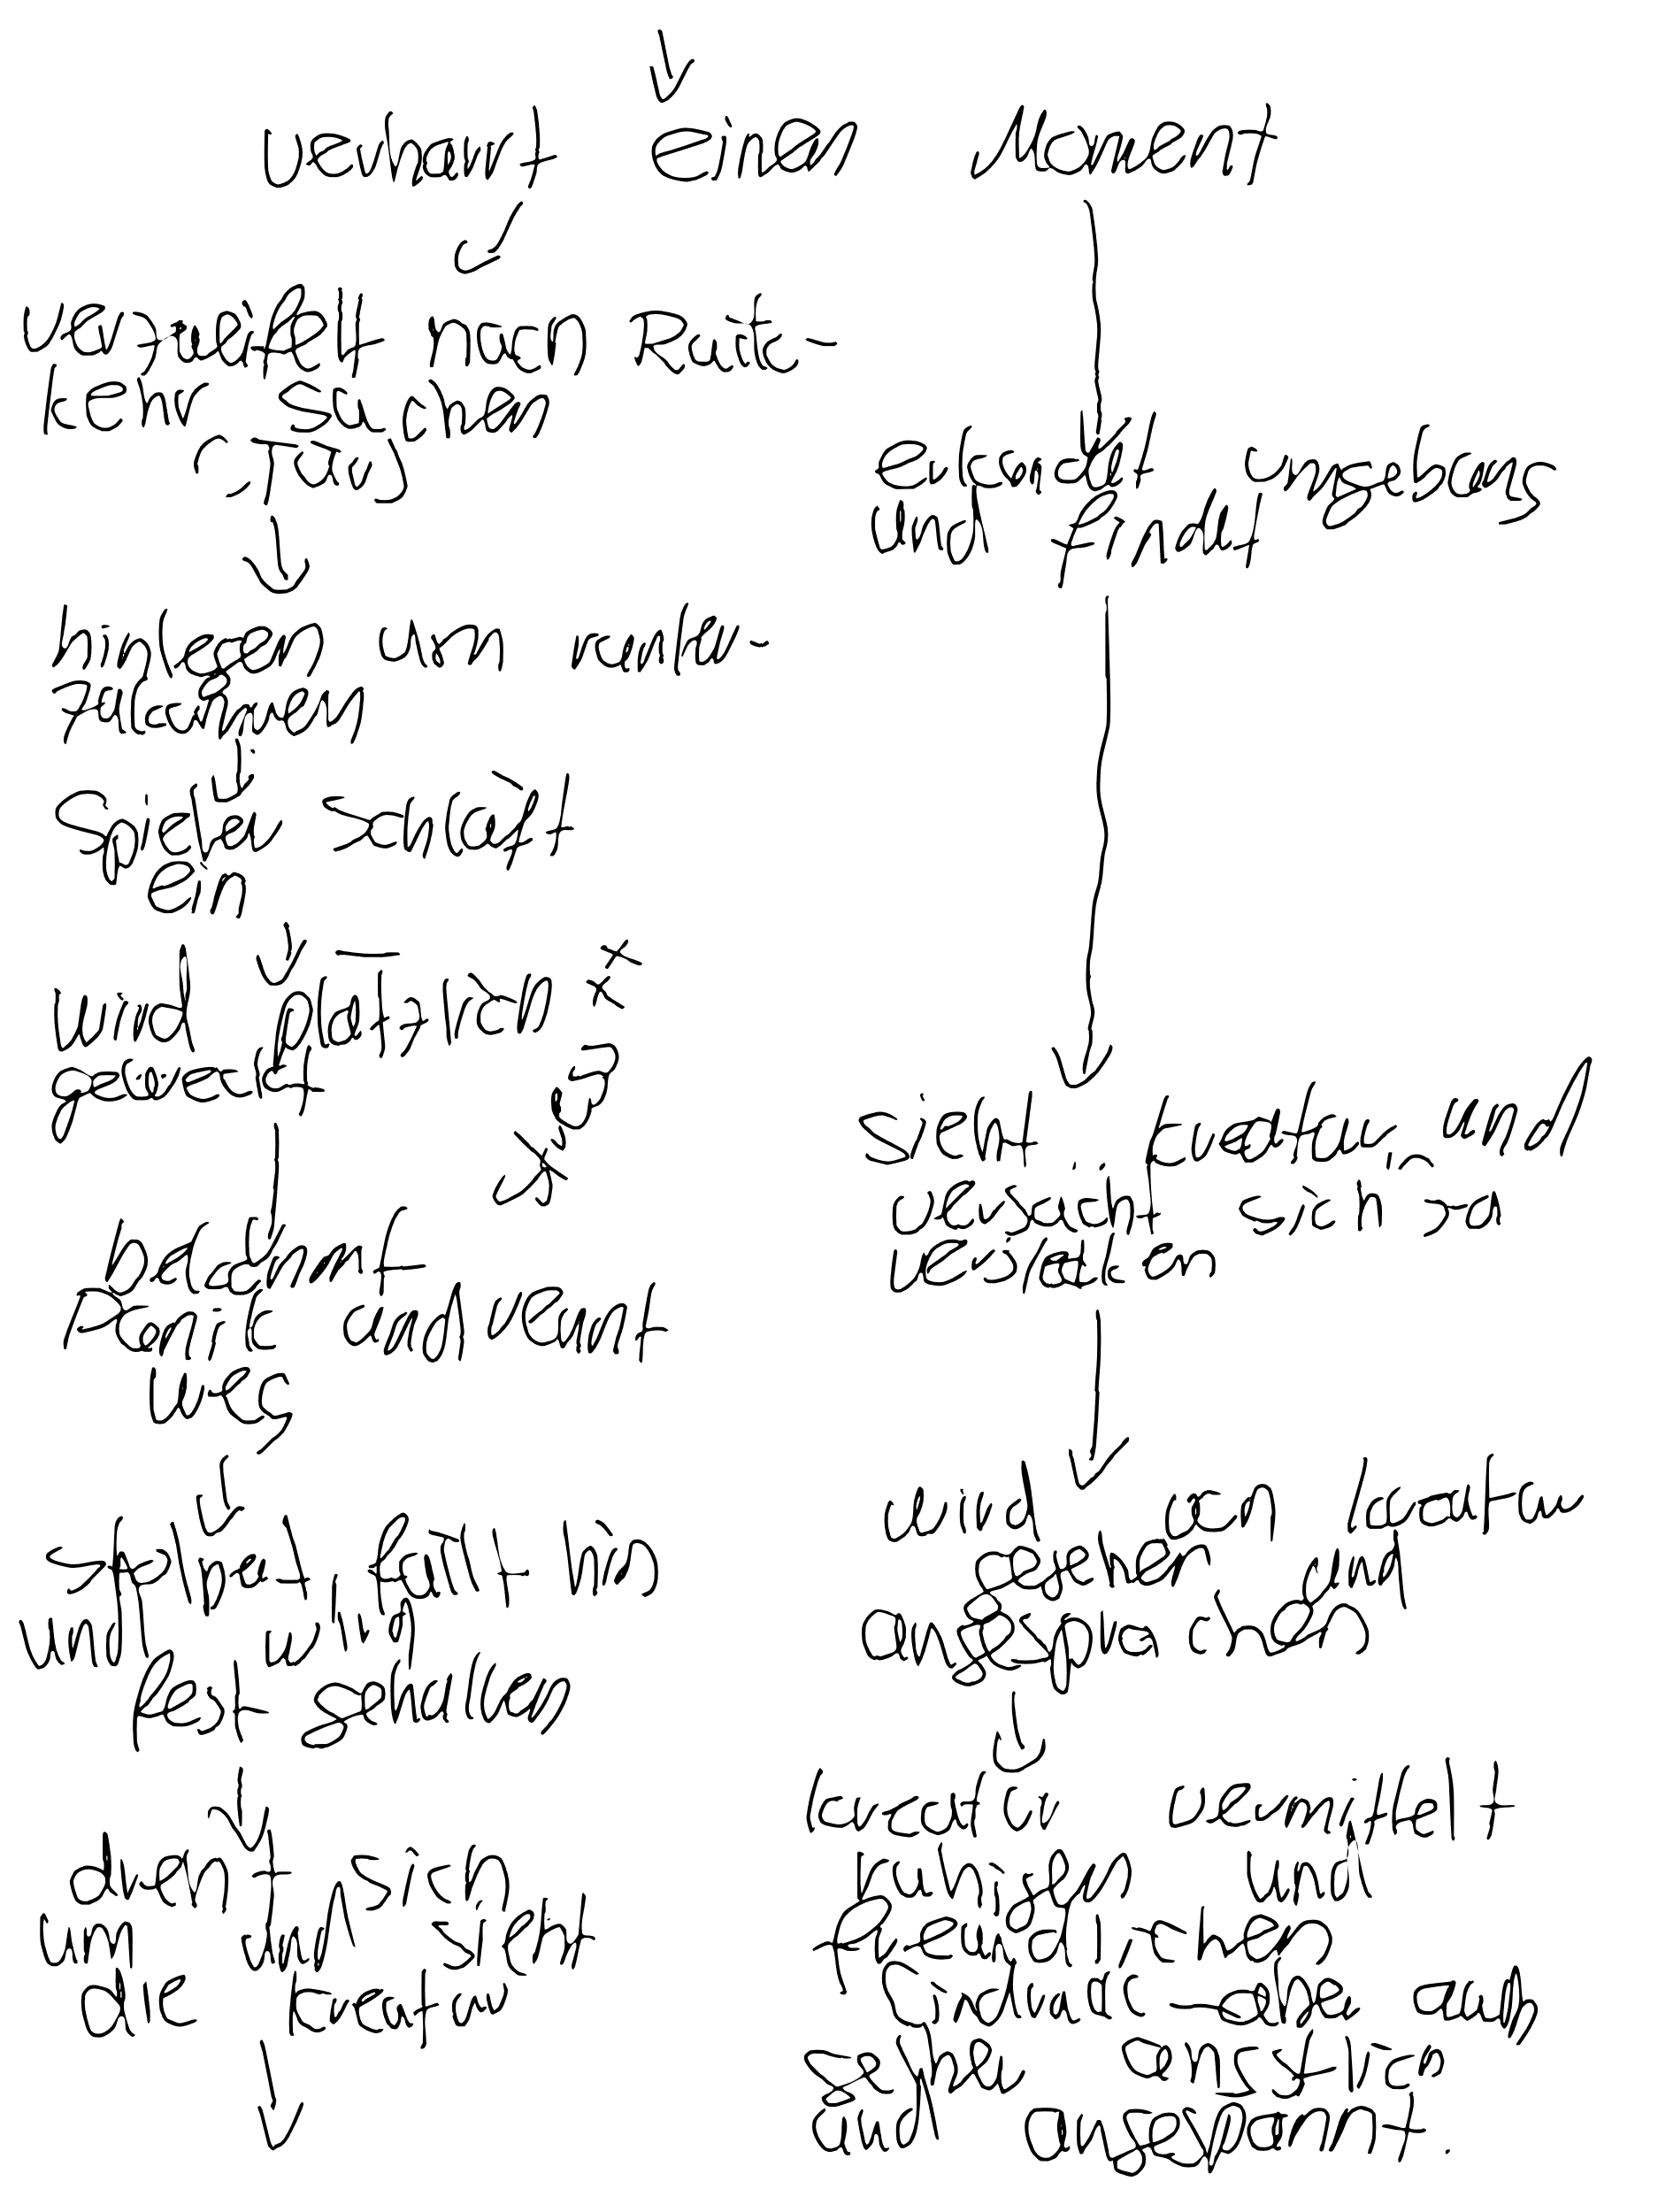 verharrt einen Moment
verzweifelt nach Rück-
kehr suchen
(„Tür“)
hinlegen um runter-
zukommen
Spieler schläft
ein
wird plötzlich
geweckt
bekommt
Panik und rennt
weg
stolpert, fällt hin
und wird
fest gehalten
dreht sich
um und sieht
die Kreatur
erkundet Umgebung
und findet
sieht Kreatur, und
versucht sich zu
verstecken
wird von Kreatur
gesehen und
angesprochen
Kreatur vermittelt
ruhigen und
freundlichen
Eindruck → aber auch
sehr ängstlich
und angespannt.